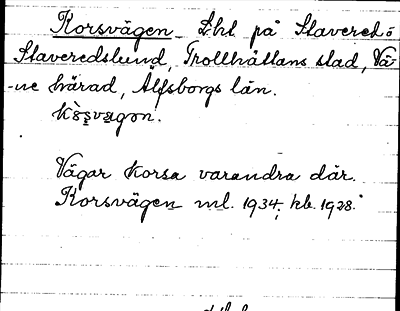 Korsvägen Lht på Stavered =
Staveredslund, Trollhättans stad, Vä-
-ne härad, Älfsborgs län.
Vägar korsa varandra där.
Korsvägen ml. 1934; kb. 1928.